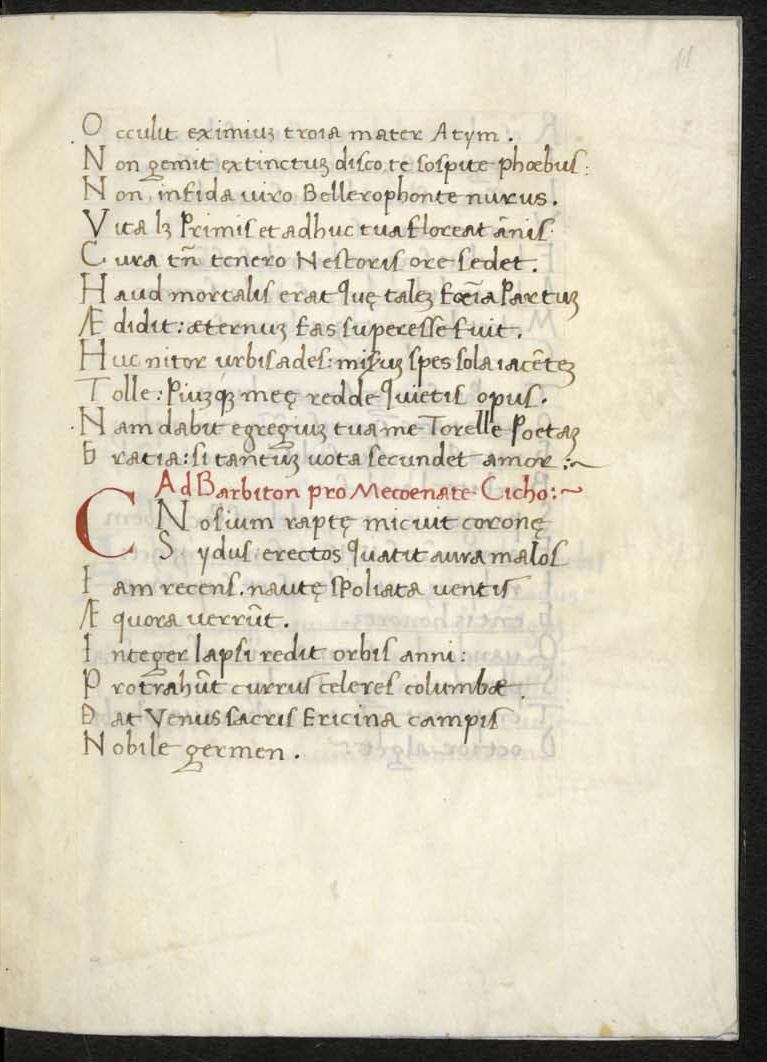 11
Occulit eximiuꝫ troia mater Atym.
Non gemit extinctuꝫ disco te sospite phœbus:
Non infida uiro Bellerophonte nurus.
Vita lꝫ Primis et adhuc tua floreat ãnis.
Cura tñ tenero Nestoris ore sedet.
Haud mortalis erat quę taleꝫ fœ̃ia Partuꝫ
Ædidit: æternuꝫ fas superesse fuit.
Huc nitor urbis ades: spes sola iacẽteꝫ
Tolle: Piuꝫqꝫ meę redde quietis opus.
Nam dabit egregiuꝫ tua me Torelle Poetaꝫ
Gratia: si tantuꝫ uota secundet amor:~
Ad Barbiton pro Mecoenate Cicho:~
CNosium raptę micuit coronę
Sydus: erectos quatit aura malos
Iam recens. nautę spoliata uentis
Æquora uerrũt.
Integer lapsi redit orbis anni:
Protrahũt currus celeres columbæ.
Dat Venus sacris Ericina campis
Nobile germen.